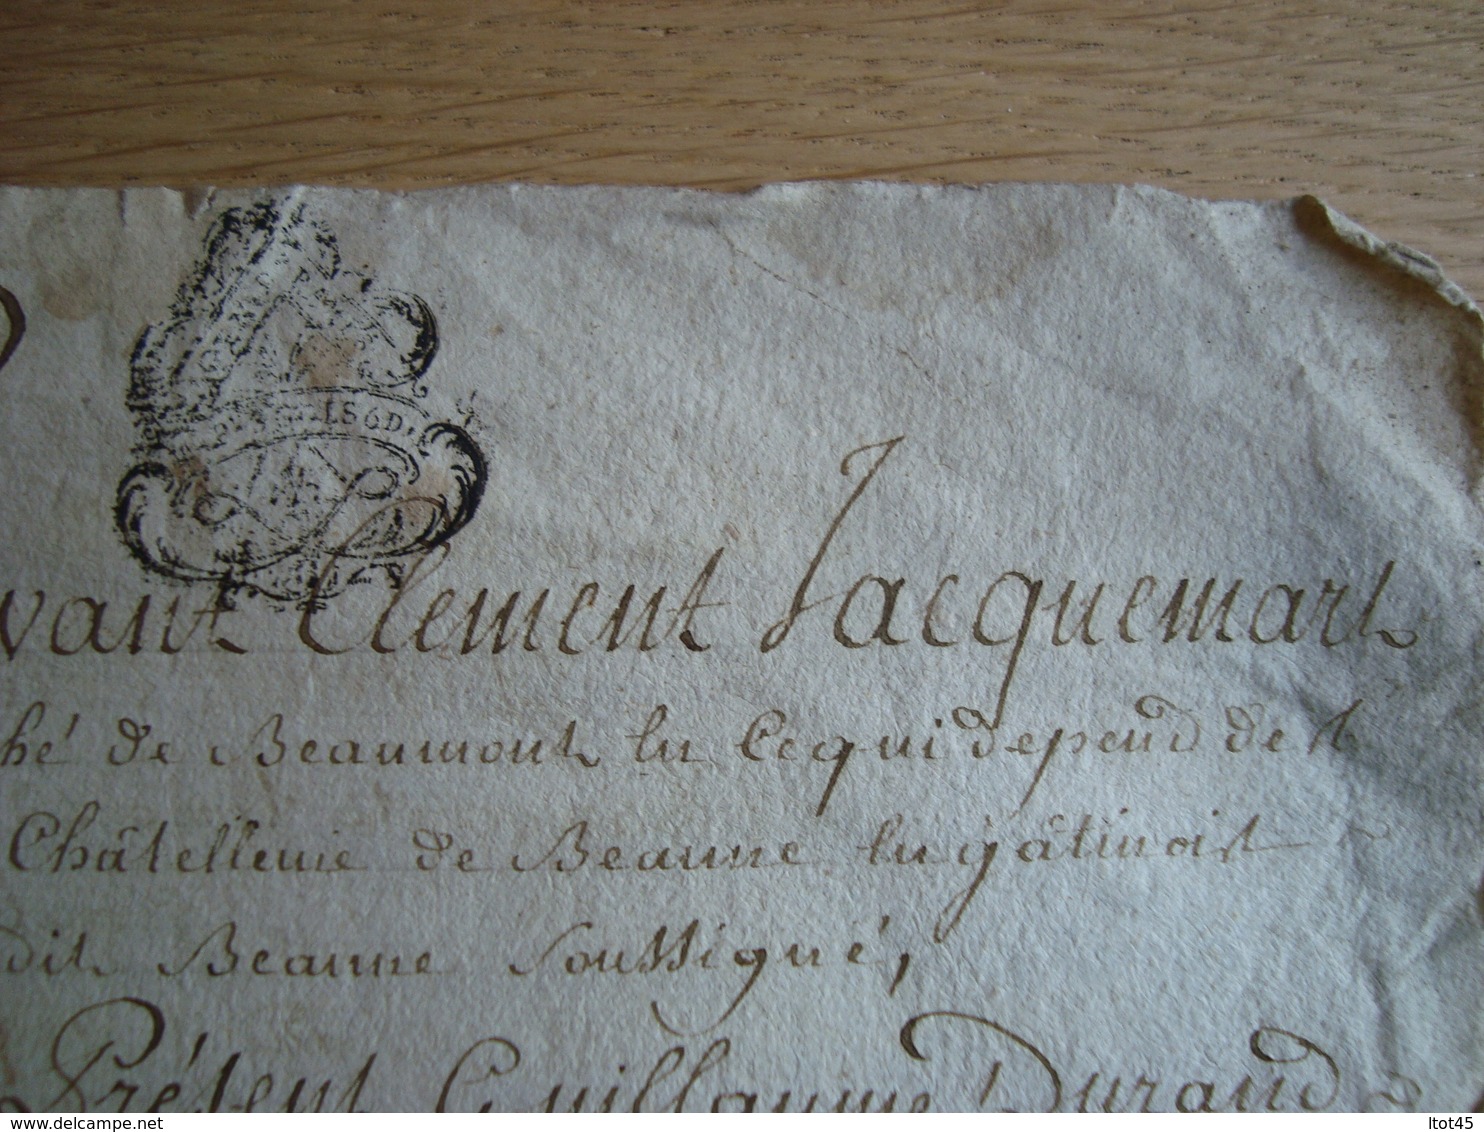 1S6D.
vant Clement Jacquemart
hé de Beaumont En Cequi depend de
Châtellenie de Beaune En gâtinois
dit Beaune Soussigné,
Présent Guillaume Durand
https://www.delcampe.net
ltot45